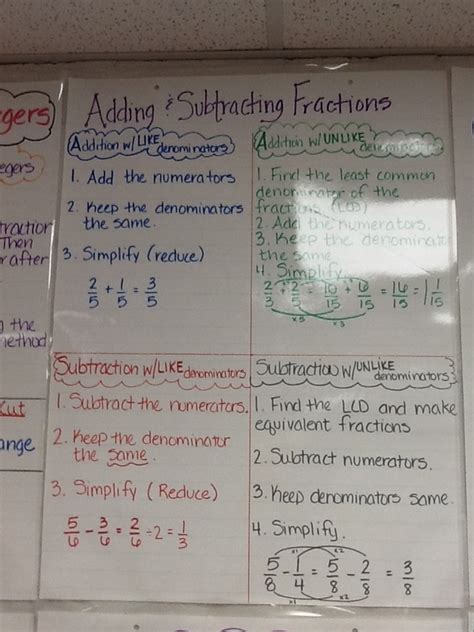 Adding & Subtracting Fractions
Addition w/ LIKE denominators
1. Add the numerators
2. Keep the denominators
the same.
3. Simplify (reduce)
2/5 + 1/5 = 3/5
Addition w/ UNLIKE denominators
1. Find the least common
denominator of the
fractions (LCD)
2. Add the numerators.
3. Keep the denominator
the same.
4. Simplify
2/3 + 2/5 = 10/15 + 6/15 = 16/15 = 1 1/15
x5 x3
Subtraction w/ LIKE denominators
1. Subtract the numerators.
2. Keep the denominator
the same.
3. Simplify (Reduce)
5/6 - 3/6 = 2/6 ÷ 2 = 1/3
Subtraction w/ UNLIKE denominators
1. Find the LCD and make
equivalent fractions
2. Subtract numerators.
3. Keep denominators same.
4. Simplify.
x1 x2
5/8 - 1/4 = 5/8 - 2/8 = 3/8
x1 x2
gers
egers
Then
after
the
Cut
ange